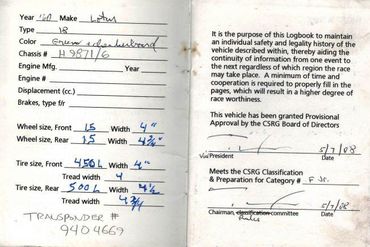 Year '60 Make Lotus
Type 18
Color Green
Chassis # H 9871/6
Engine Mfg. Year
Engine #
Displacement (cc.)
Brakes, type f/r
Wheel size, Front 15 Width 4"
Wheel size, Rear 15 Width 4 3/4"
Tire size, Front 450L Width 4"
Tread width 4
Tire size, Rear 500L Width 4 1/2
Tread width 4 3/4
TRANSPONDER #
9404669
It is the purpose of this Logbook to maintain
an individual safety and legality history of the
vehicle described within, thereby aiding the
continuity of information from one event to
the next regardless of which region the race
may take place. A minimum of time and
cooperation is required to properly fill in the
pages, which will result in a higher degree of
race worthiness.
This vehicle has been granted Provisional
Approval by the CSRG Board of Directors
5/7/88
Vice President Date
Meets the CSRG Classification
& Preparation for Category # F Jr.
5/7/88
Chairman, classification committee Date
Rules